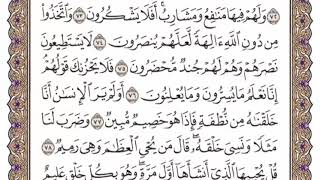 وَلَهُمْ فِيهَا مَنَٰفِعُ وَمَشَارِبُ أَفَلَا يَشْكُرُونَ ٧٣ وَٱتَّخَذُوا۟
مِن دُونِ ٱللَّهِ ءَالِهَةً لَّعَلَّهُمْ يُنصَرُونَ ٧٤ لَا يَسْتَطِيعُونَ
نَصْرَهُمْ وَهُمْ لَهُمْ جُندٌ مُّحْضَرُونَ ٧٥ فَلَا يَحْزُنكَ قَوْلُهُمْ
إِنَّا نَعْلَمُ مَا يُسِرُّونَ وَمَا يُعْلِنُونَ ٧٦ أَوَلَمْ يَرَ ٱلْإِنسَٰنُ أَنَّا
خَلَقْنَٰهُ مِن نُّطْفَةٍ فَإِذَا هُوَ خَصِيمٌ مُّبِينٌ ٧٧ وَضَرَبَ لَنَا
مَثَلًا وَنَسِىَ خَلْقَهُۥ قَالَ مَن يُحْىِ ٱلْعِظَٰمَ وَهِىَ رَمِيمٌ ٧٨
قُلْ يُحْيِيهَا ٱلَّذِىٓ أَنشَأَهَآ أَوَّلَ مَرَّةٍ وَهُوَ بِكُلِّ خَلْقٍ عَلِيمٌ